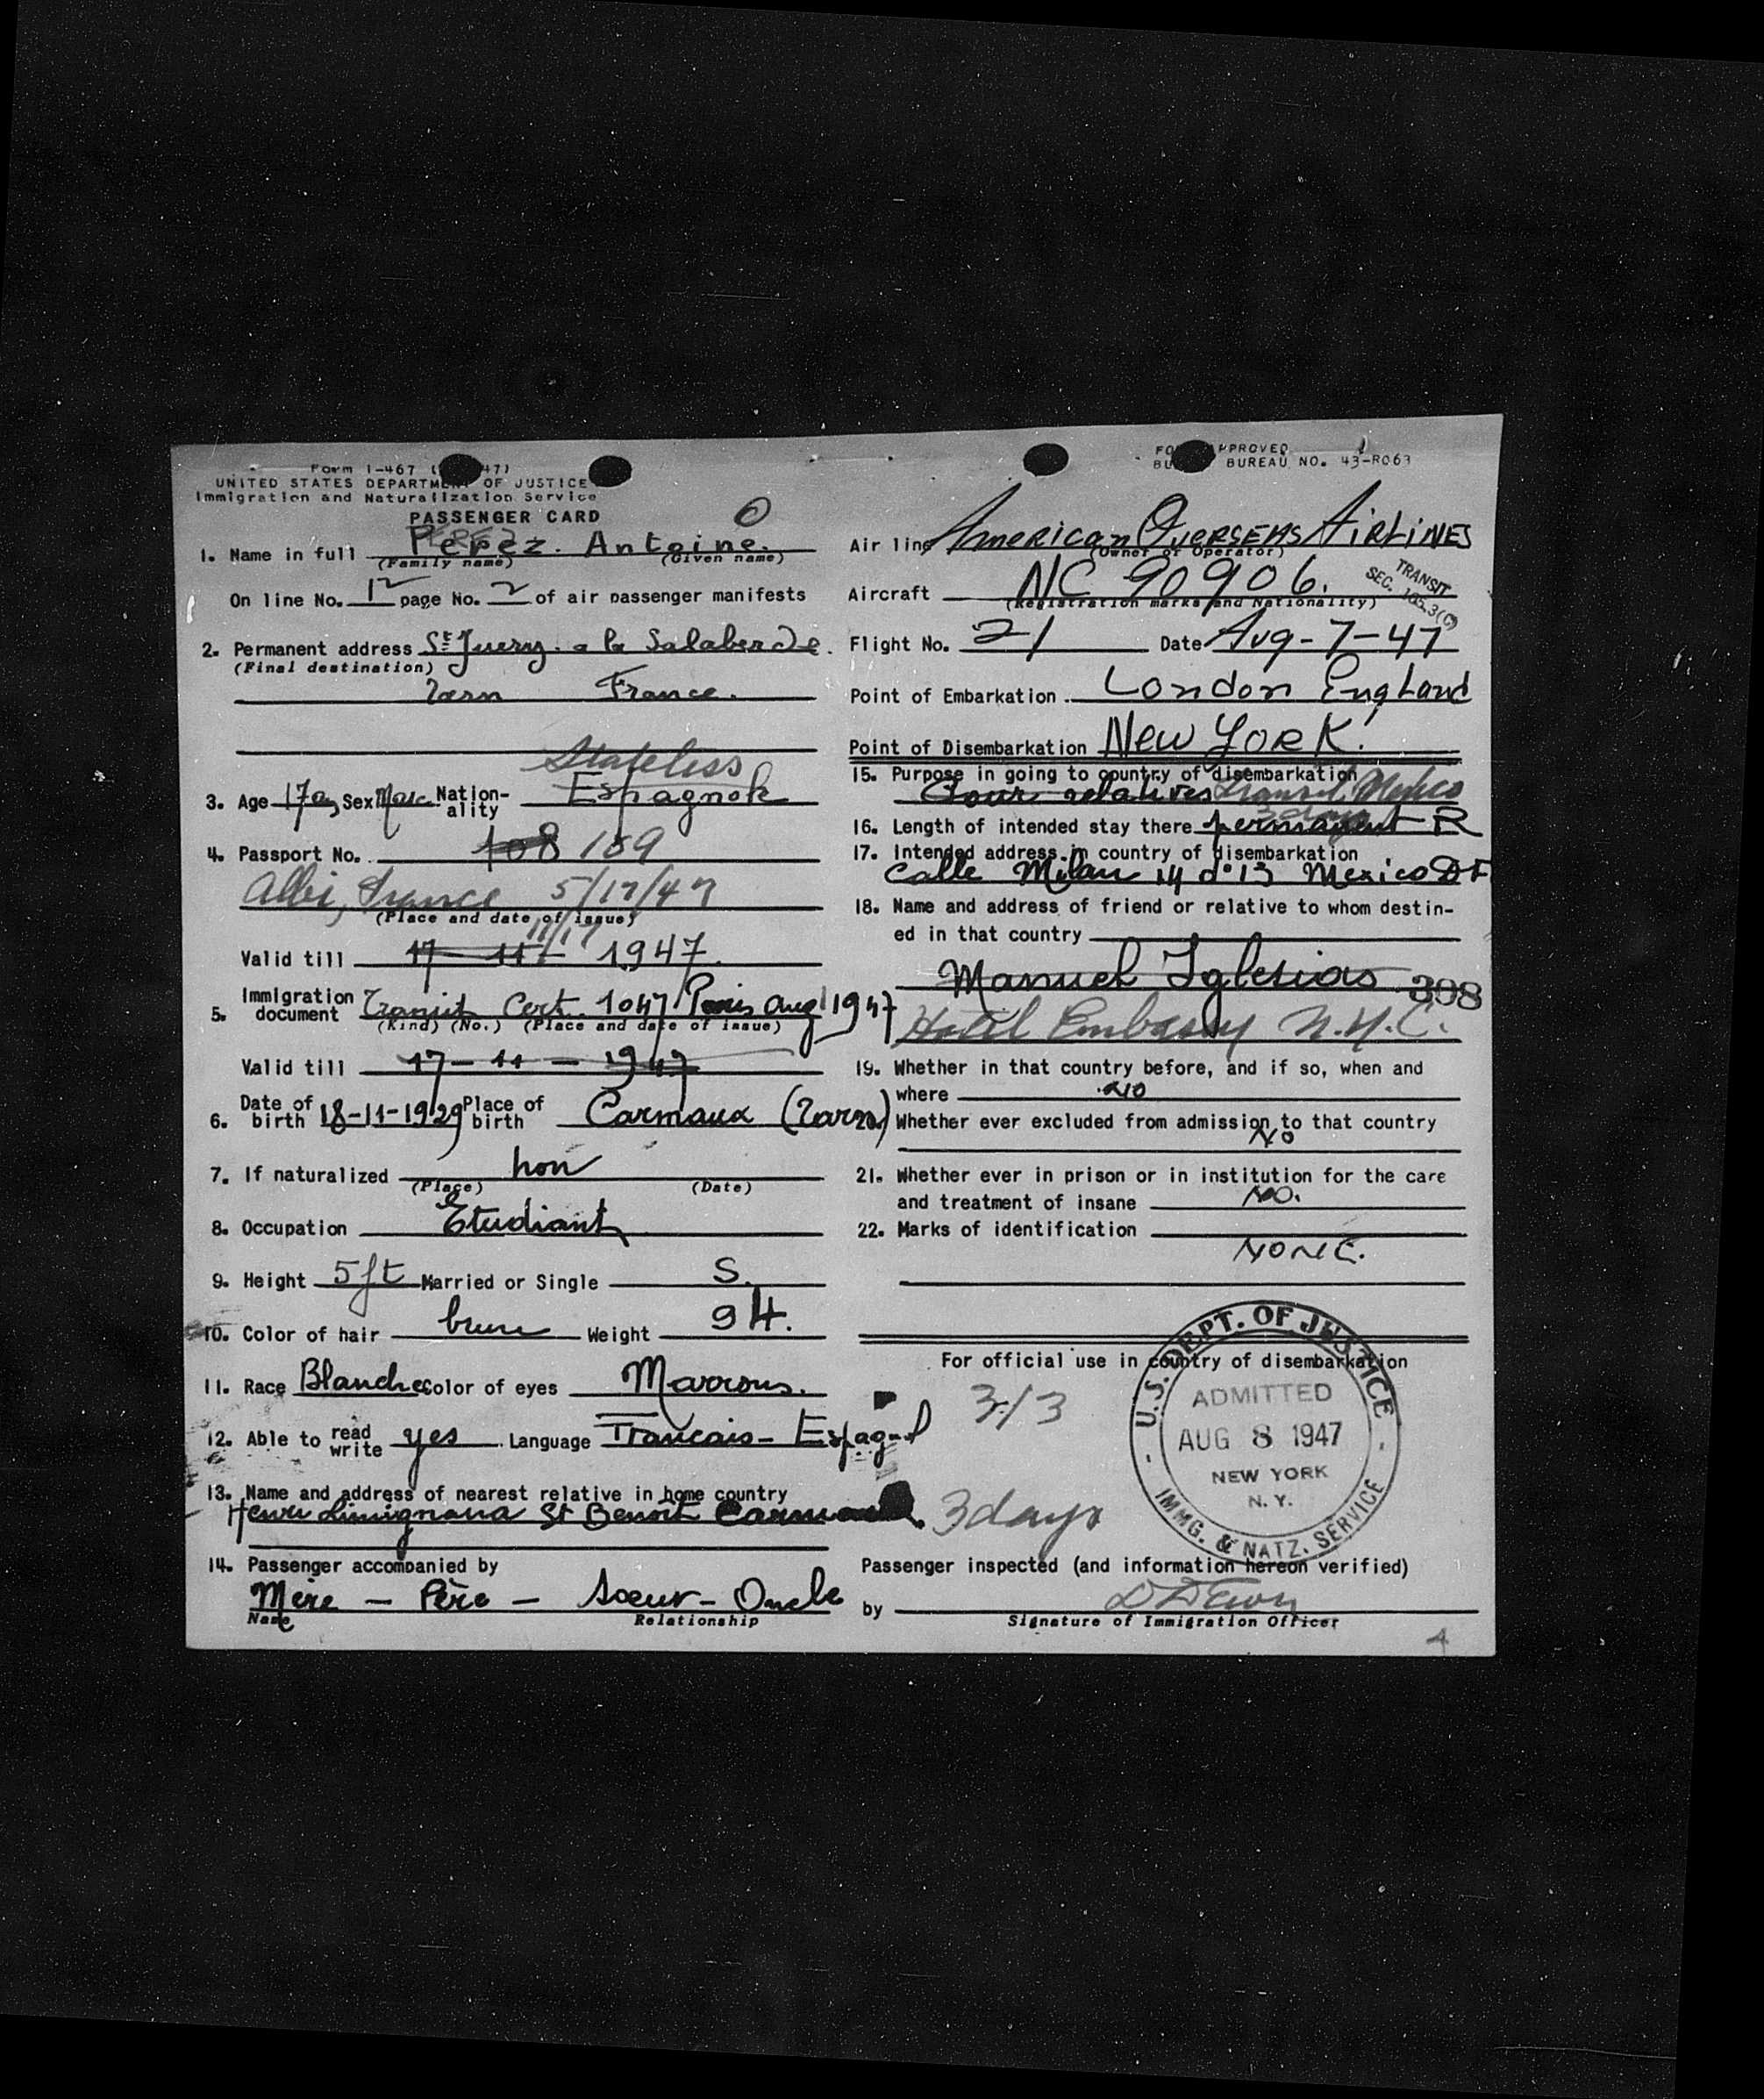 Form I-467 ( 47)
UNITED STATES DEPARTMENT OF JUSTICE
Immigration and Naturalization Service
PASSENGER CARD
1. Name in full Perez. Antoine.
(Family name) (Given name)
On line No. 12 page No. 2 of air passenger manifests
2. Permanent address St Juery. a la
(Final destination)
Tarn France.
Stateless
3. Age 17a Sex Masc Nation-ality Espagnole
4. Passport No. 108 109
Albi, France 5/17/47
(Place and date of issue)
11/17
Valid till 17-11- 1947.
5. Immigration document Transit Cert. 1047 Paris Aug 1 1947
(Kind) (No.) (Place and date of issue)
Valid till 17-11-1947
6. Date of birth 18-11-1929 Place of birth Carmaux (Tarn)
7. If naturalized non
(Place) (Date)
8. Occupation Etudiant
9. Height 5ft Married or Single S.
10. Color of hair brun Weight 94.
11. Race Blanche Color of eyes Marrons.
12. Able to read write yes Language Francais- Espagnol
13. Name and address of nearest relative in home country
Henri St Benoit Carmaux
14. Passenger accompanied by
Mère - Père - Soeur- Oncle
Name Relationship
FO APPROVED
BU BUREAU NO. 43-R063
Air line American Overseas Airlines
(Owner or Operator)
Aircraft NC 90906.
(Registration marks and Nationality)
TRANSIT
SEC. 165.3(C)
Flight No. 21 Date Aug-7-47
Point of Embarkation London England
Point of Disembarkation New York.
15. Purpose in going to country of disembarkation
relatives Transit Mexico
16. Length of intended stay there permanent R
17. Intended address in country of disembarkation
Calle Milan 14 d° 13 Mexico DF
18. Name and address of friend or relative to whom destin-
ed in that country
Manuel Iglesias 398
Hotel Embassy N.Y.C.
19. Whether in that country before, and if so, when and
where NO
20. Whether ever excluded from admission to that country
NO
21. Whether ever in prison or in institution for the care
and treatment of insane NO.
22. Marks of identification
NONE.
For official use in country of disembarkation
3/3
3 days
U.S. DEPT. OF JUSTICE
ADMITTED
AUG 8 1947
NEW YORK
N. Y.
IMMG. & NATZ. SERVICE
Passenger inspected (and information hereon verified)
by
Signature of Immigration Officer
4